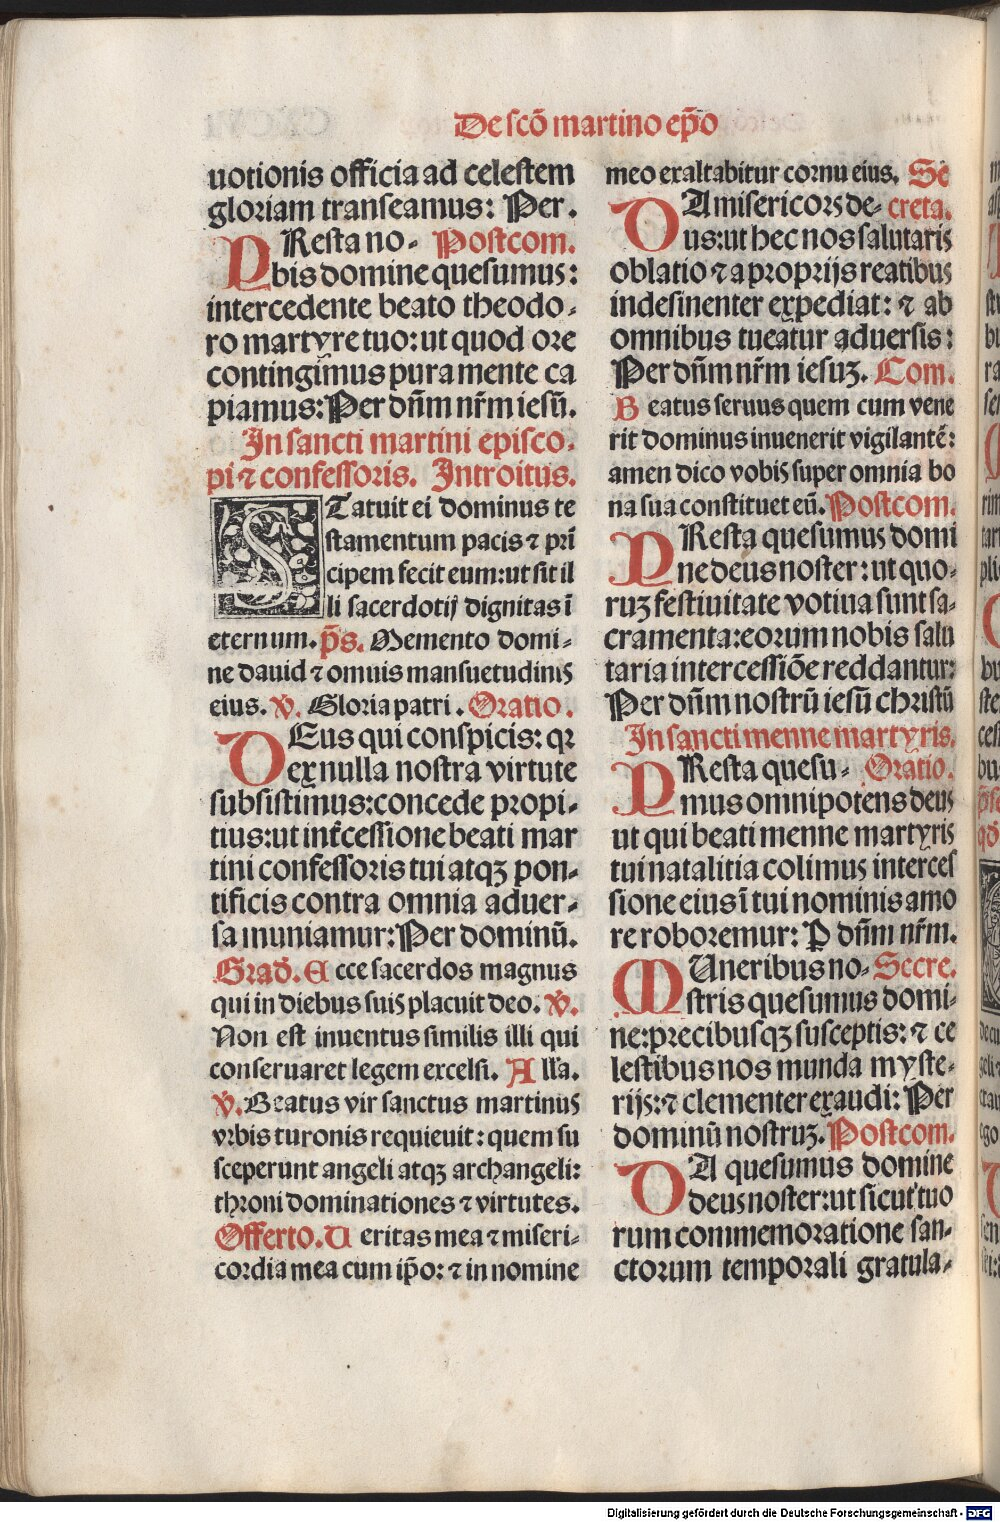 De scō martino ep̄o
uotionis officia ad celestem
gloriam transeamus: Per.
PResta no- Postcom.
bis domine quesumus:
intercedente beato theodo-
ro martyre tuo: ut quod ore
contingimus pura mente ca
piamus: Per dn̄m nr̄m iesū.
In sancti martini episco-
pi ⁊ confessoris. Introitus.
STatuit ei dominus te
stamentum pacis ⁊ prī
cipem fecit eum: ut sit il
li sacerdotij dignitas ī
eternum. p̄s. Memento domi-
ne dauid ⁊ omnis mansuetudinis
eius. v̄. Gloria patri. Oratio.
DEus qui conspicis: qꝛ
ex nulla nostra virtute
subsistimus: concede propi-
tius: ut int̄cessione beati mar
tini confessoris tui atqꝫ pon-
tificis contra omnia aduer-
sa muniamur: Per dominū.
Grad̄. Ecce sacerdos magnus
qui in diebus suis placuit deo. v̄.
Non est inuentus similis illi qui
conseruaret legem excelsi. Alla.
v̄. Beatus vir sanctus martinus
vrbis turonis requieuit: quem su
sceperunt angeli atqꝫ archangeli:
throni dominationes ⁊ virtutes.
Offerto. Ueritas mea ⁊ miseri-
cordia mea cum ip̄o: ⁊ in nomine
meo exaltabitur cornu eius. Se
DA misericors de- creta.
us: ut hec nos salutaris
oblatio ⁊ a proprijs reatibus
indesinenter expediat: ⁊ ab
omnibus tueatur aduersis:
Per dn̄m nr̄m iesuꝫ. Com.
Beatus seruus quem cum vene
rit dominus inuenerit vigilantē:
amen dico vobis super omnia bo
na sua constituet eū. Postcom.
PResta quesumus domi
ne deus noster: ut quo-
ruꝫ festiuitate votiua sunt sa-
cramenta: eorum nobis salu
taria intercessiōe reddantur:
Per dn̄m nostrū iesū christū
In sancti menne martyris.
PResta quesu- Oratio.
mus omnipotens deus
ut qui beati menne martyris
tui natalitia colimus interces
sione eius ī tui nominis amo
re roboremur: P dn̄m nr̄m.
MUneribus no- Secre.
stris quesumus domi-
ne: precibusqꝫ susceptis: ⁊ ce
lestibus nos munda myste-
rijs: ⁊ clementer exaudi: Per
dominū nostruꝫ. Postcom.
DA quesumus domine
deus noster: ut sicut tuo
rum commemoratione san-
ctorum temporali gratula-
Digitalisierung gefördert durch die Deutsche Forschungsgemeinschaft - DFG